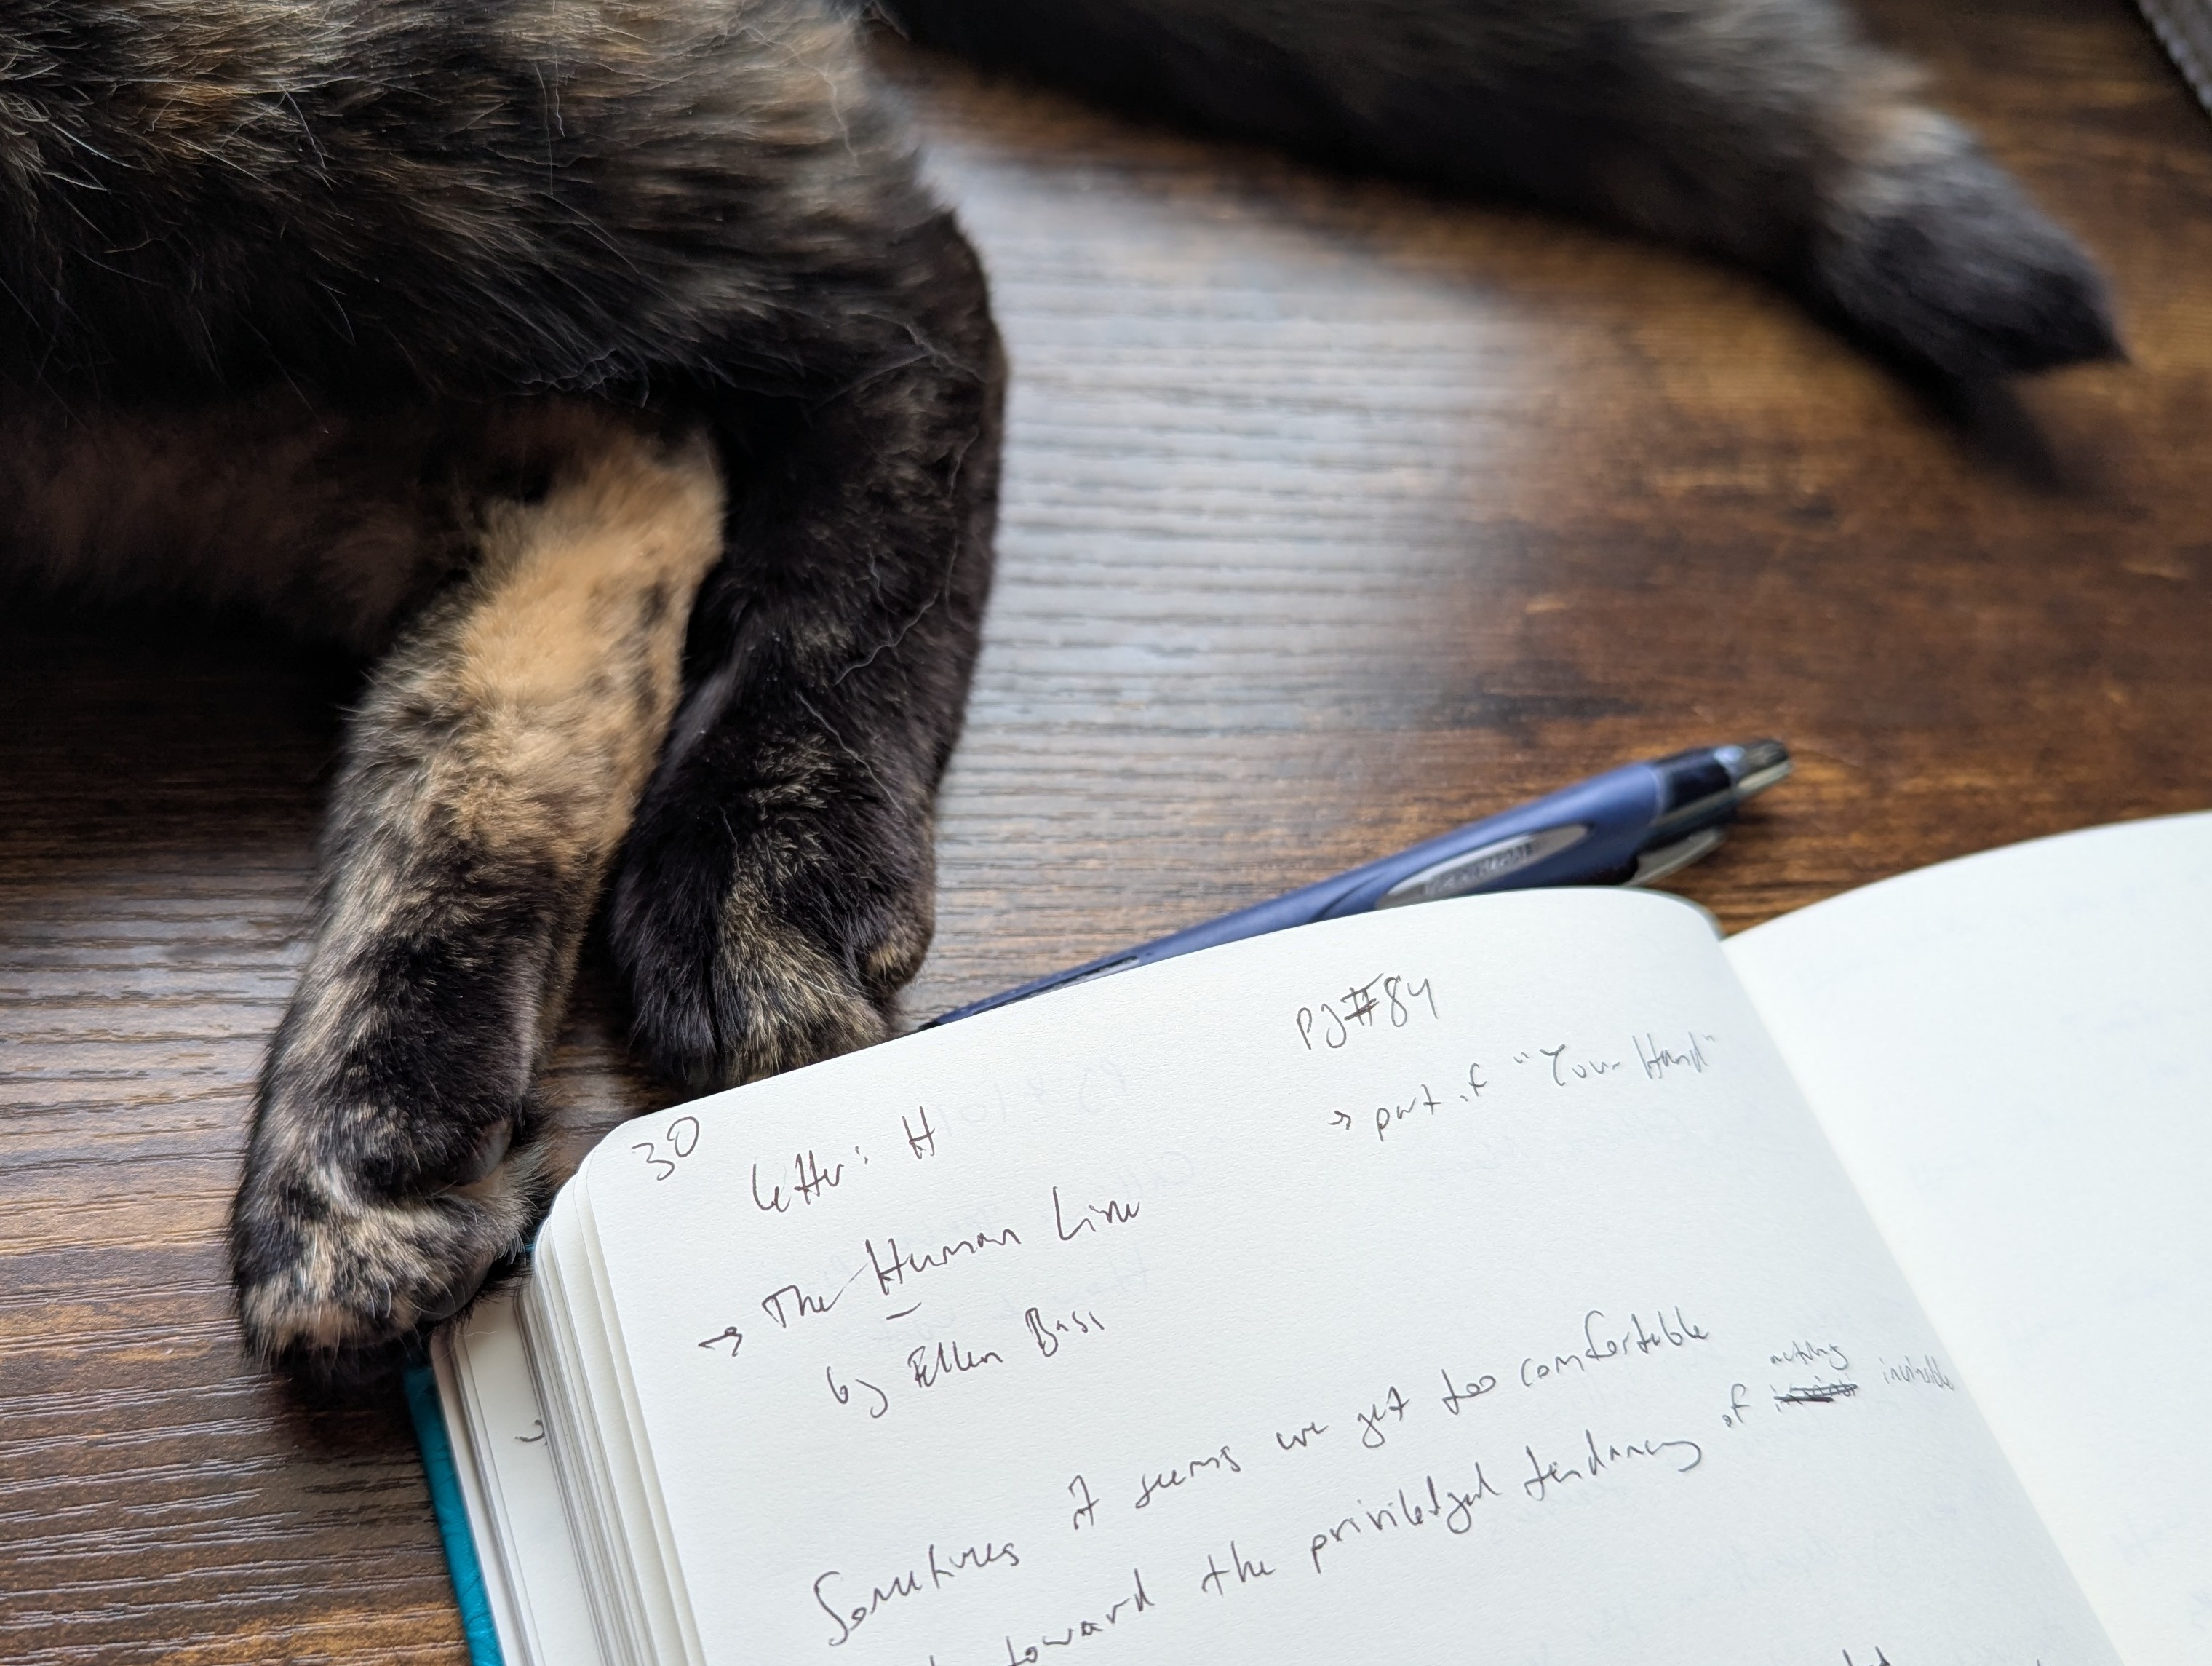 PJ#84
→ part of "Your Hand"
30
Letter: H
→ The Human Line
by Ellen Bass
Sometimes it seems we get too comfortable
toward the priviledged tendancy of acting invisible